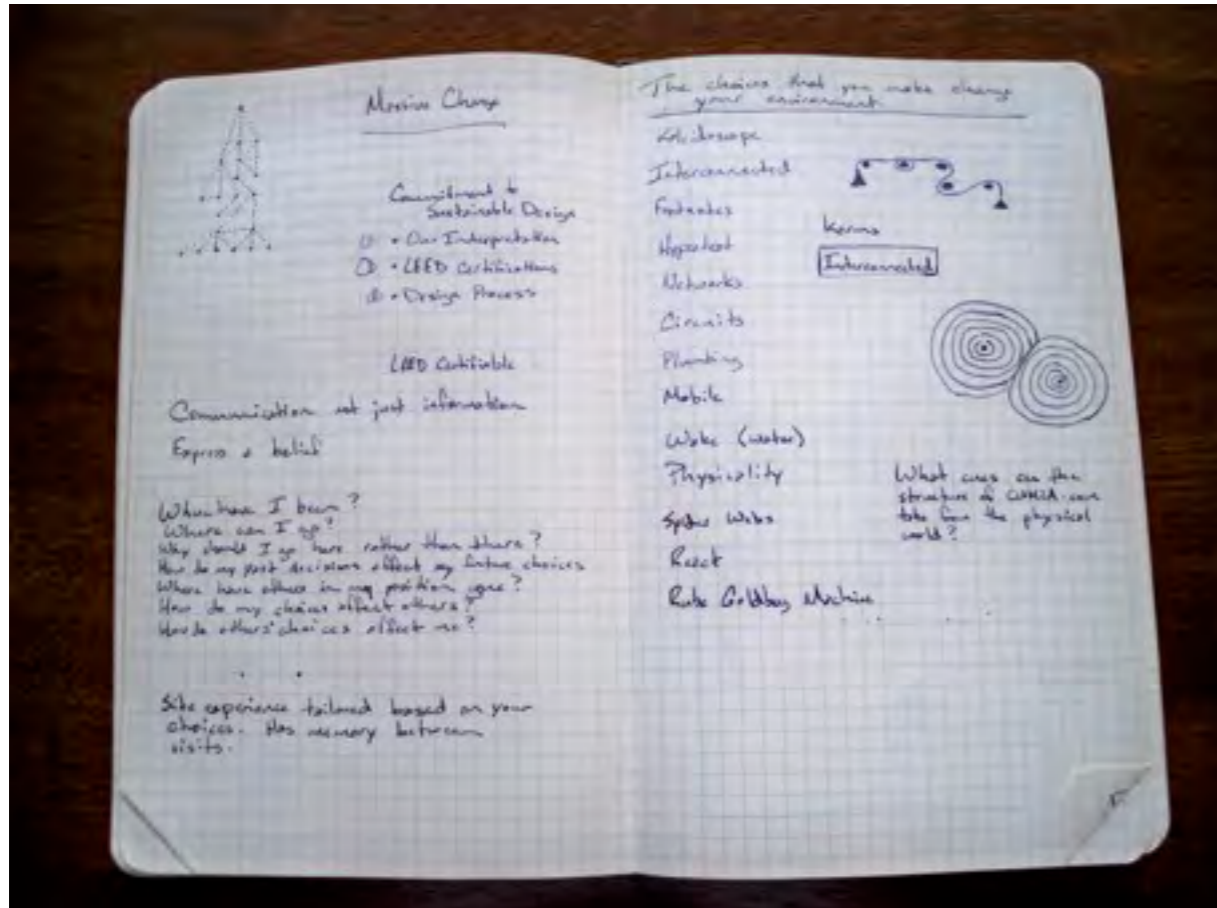 Massive Change
Commitment to
Sustainable Design
① • Our Interpretation
② • LEED Certifications
③ • Design Process
LEED Certifiable
Communication not just information
Express a belief
Where have I been?
Where can I go?
Why should I go here rather than there?
How do my past decisions affect my future choices
Where have others in my position gone?
How do my choices affect others?
How do others' choices affect me?
Site experience tailored based on your
choices. Has memory between
visits.
The choices that you make change
your environment
Kaleidoscope
Interconnected
Footnotes
Hypertext
Networks
Circuits
Plumbing
Mobile
Wake (water)
Physicality
Spider Webs
React
Rube Goldberg Machine
Karma
Interconnected
What cues on the
structure of can
take from the physical
world?